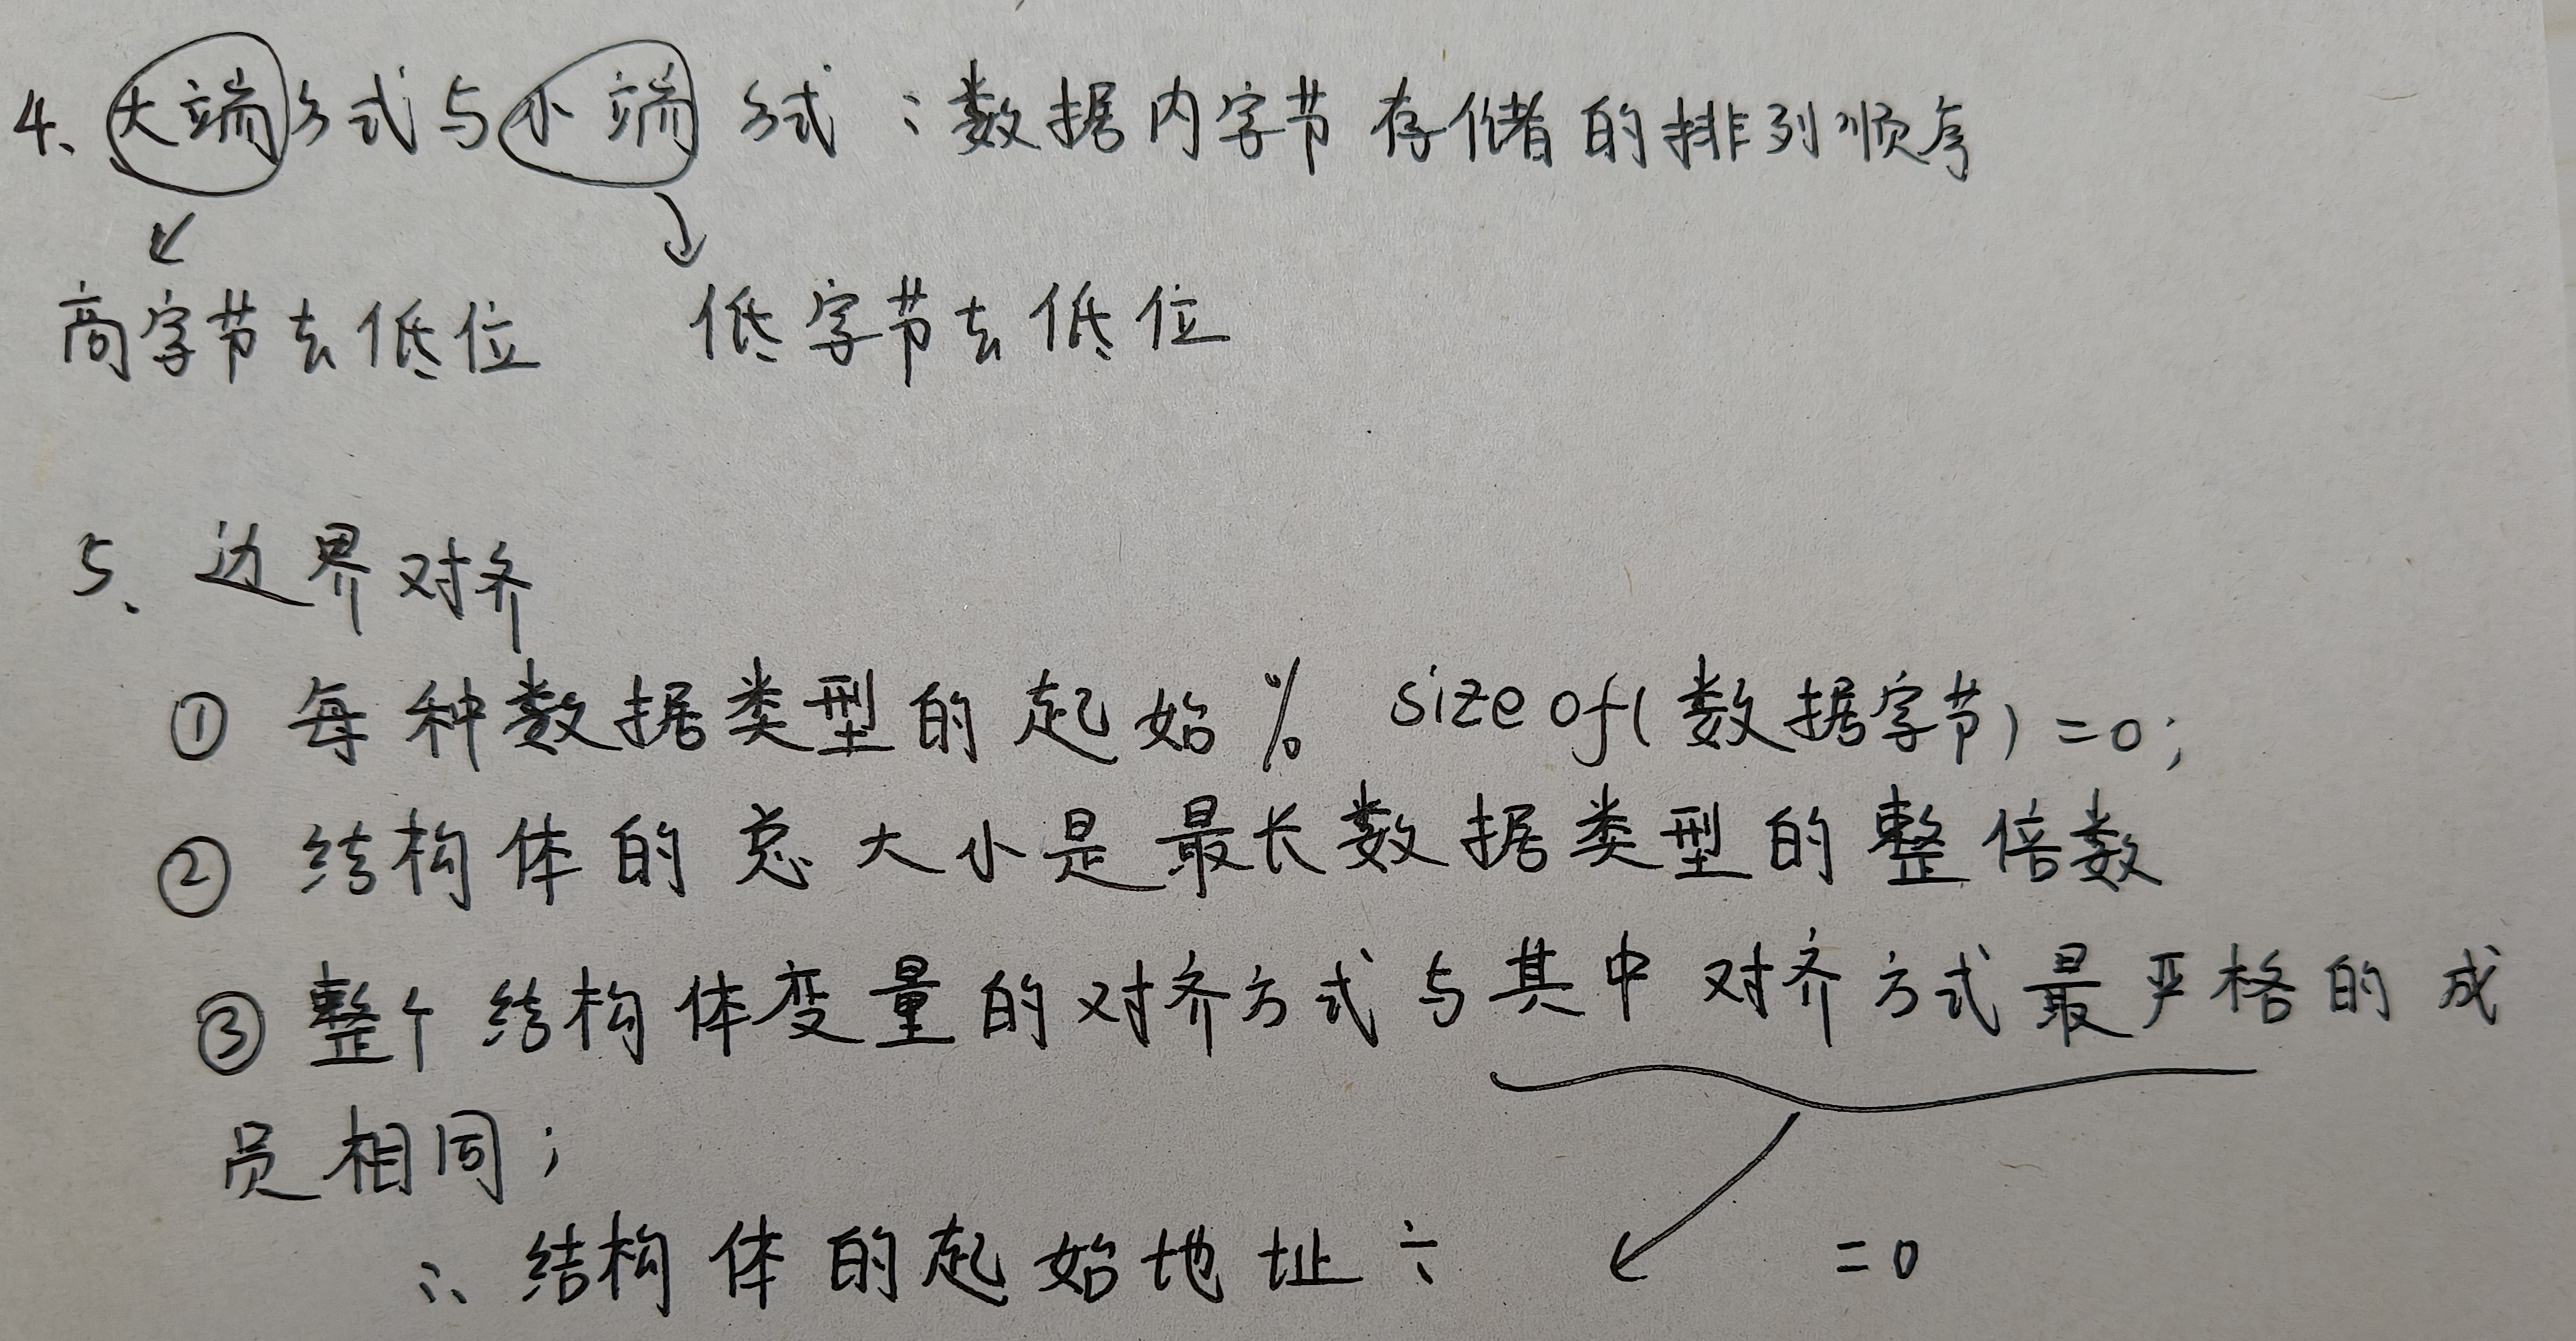 4、大端方式与小端 方式：数据内字节存储的排列顺序
高字节去低位 低字节去低位
5、边界对齐
① 每种数据类型的起始 % sizeof(数据字节)=0;
② 结构体的总大小是最长数据类型的整倍数
③ 整个结构体变量的对齐方式与其中对齐方式最严格的成
员相同；
∴ 结构体的起始地址÷ =0